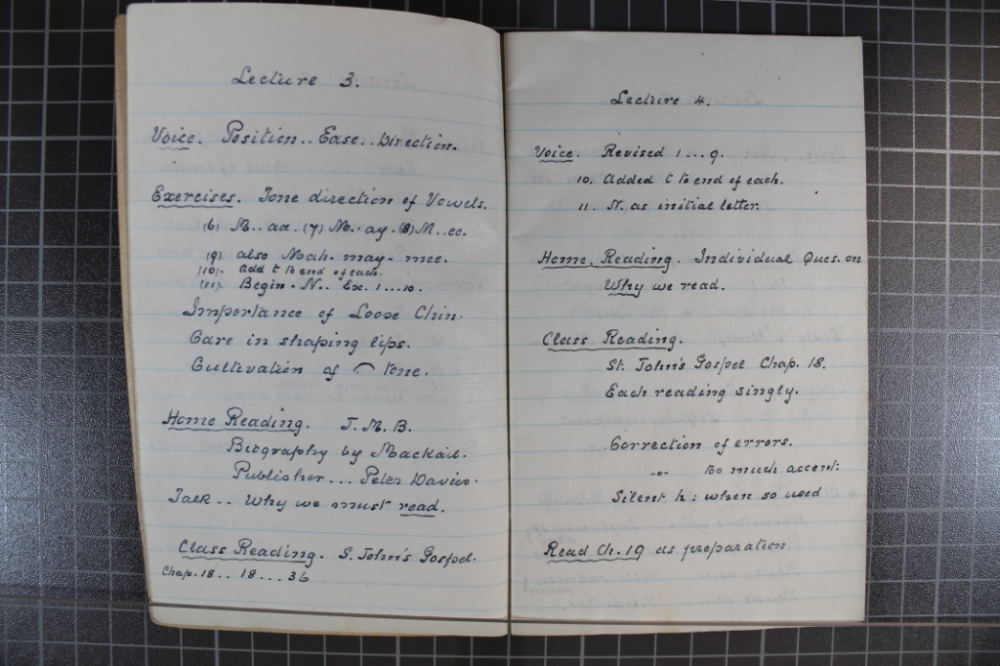 Lecture 3.
Voice. Position.. Ease.. Direction.
Exercises. Tone direction of Vowels.
(6) M.. aa. (7) M.. ay. (8) M.. ee.
(9) also Noah. may. mee.
(10). add t to end of each.
(11). Begin - N.. Ex. 1....10.
Importance of Loose Chin.
Care in shaping lips.
Cultivation of ⌒ tone.
Home Reading. J. M. B.
Biography by Mackail.
Publisher... Peter Davies.
Talk.. Why we must read.
Class Reading. S. John's Gospel.
Chap. 18.. 18... 36
Lecture 4.
Voice. Revised 1...9.
10. Added t to end of each.
11. N. as initial letter.
Home Reading. Individual Ques. on
Why we read.
Class Reading.
St. John's Gospel Chap. 18.
Each reading singly.
Correction of errors.
-"- too much accent:
Silent h: when so used
Read Ch. 19 as preparation